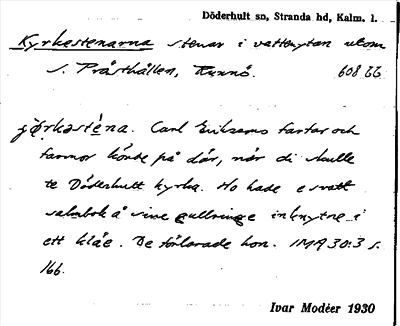 Döderhult sn, Stranda hd, Kalm. l.
Kyrkestenarna stenar i vattenytan utom
S. Prästhällen, Runnö. 608 66
Carl Erikssons farfar och
farmor körde på där, när di skulle
te Döderhult kyrka. Ho hade e svatt
salmbok å sine gullringe inknytne i
ett kläe. De förlorade hon. IMA 30:3 s.
166.
Ivar Modéer 1930